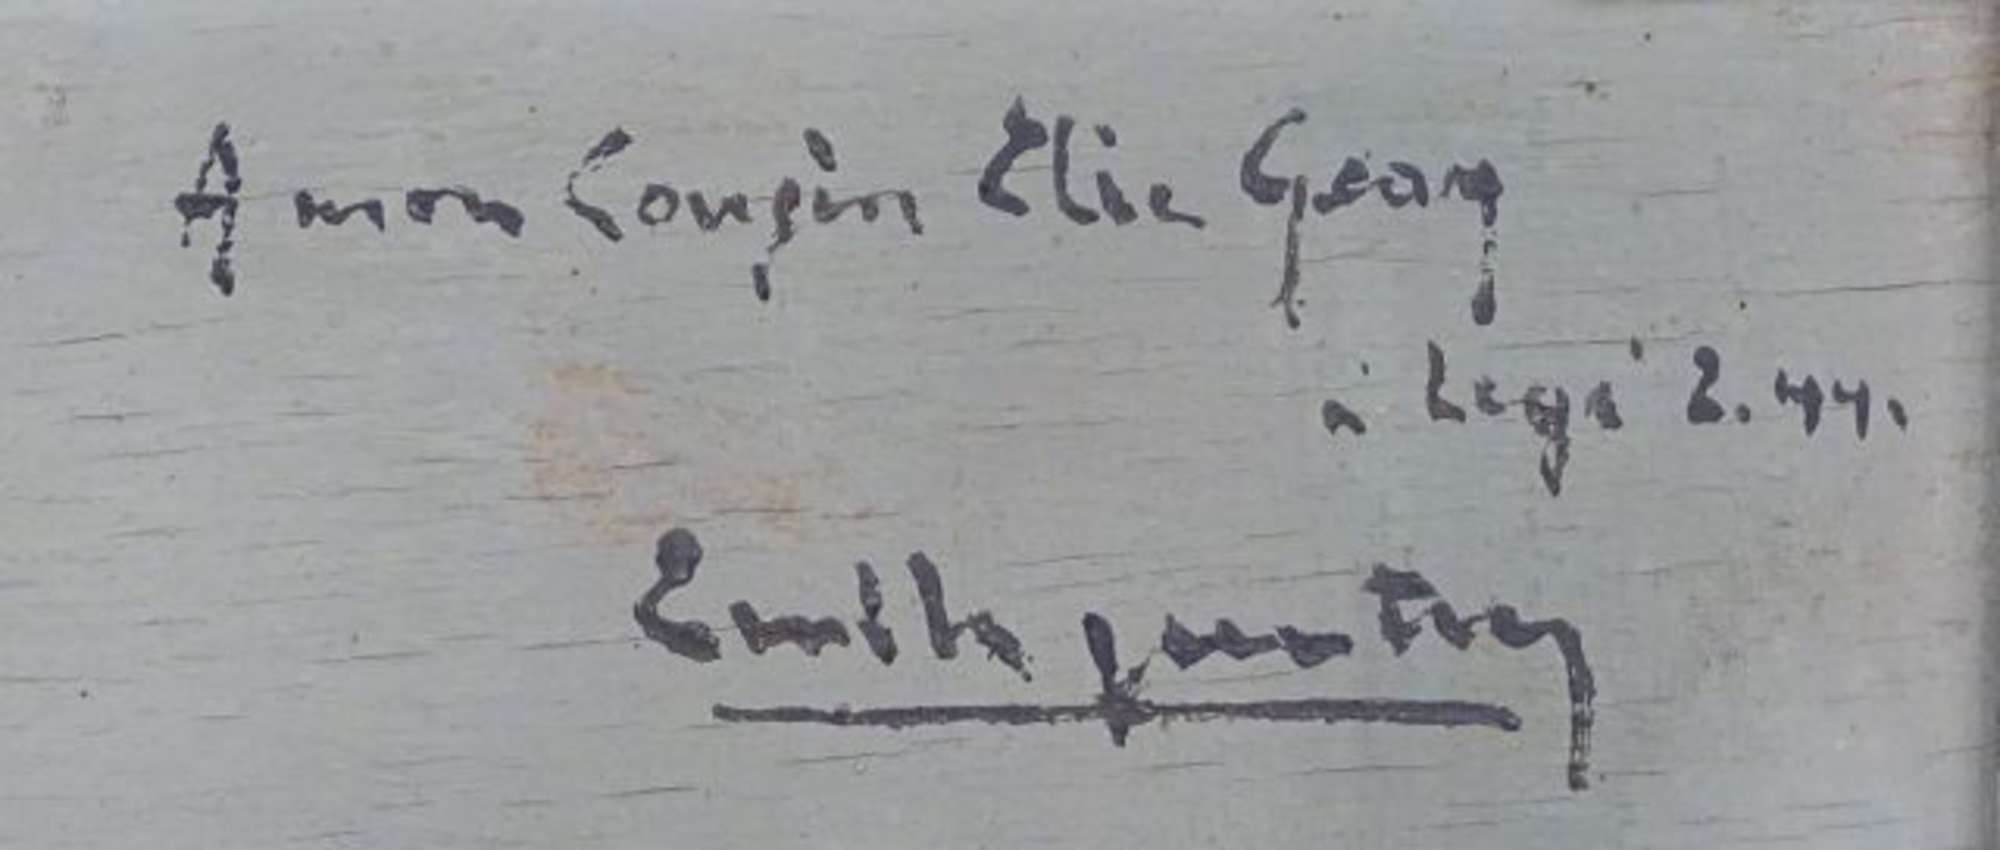 A mon Cousin Elie Geay
à Legé 2.44.
Emile